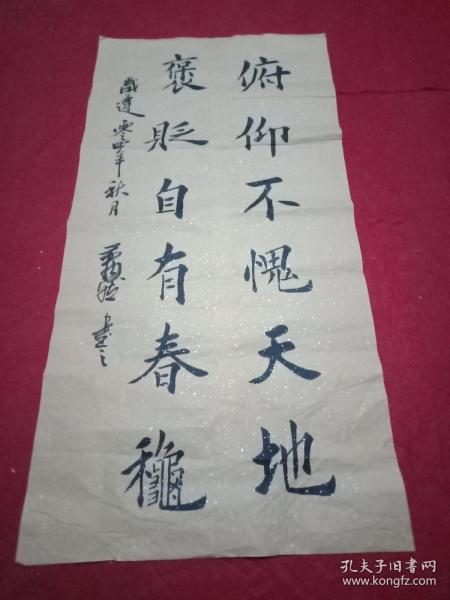 俯仰不愧天地
褒贬自有春龝
歲達零四年秋月
書之
孔夫子旧书网
www.kongfz.com